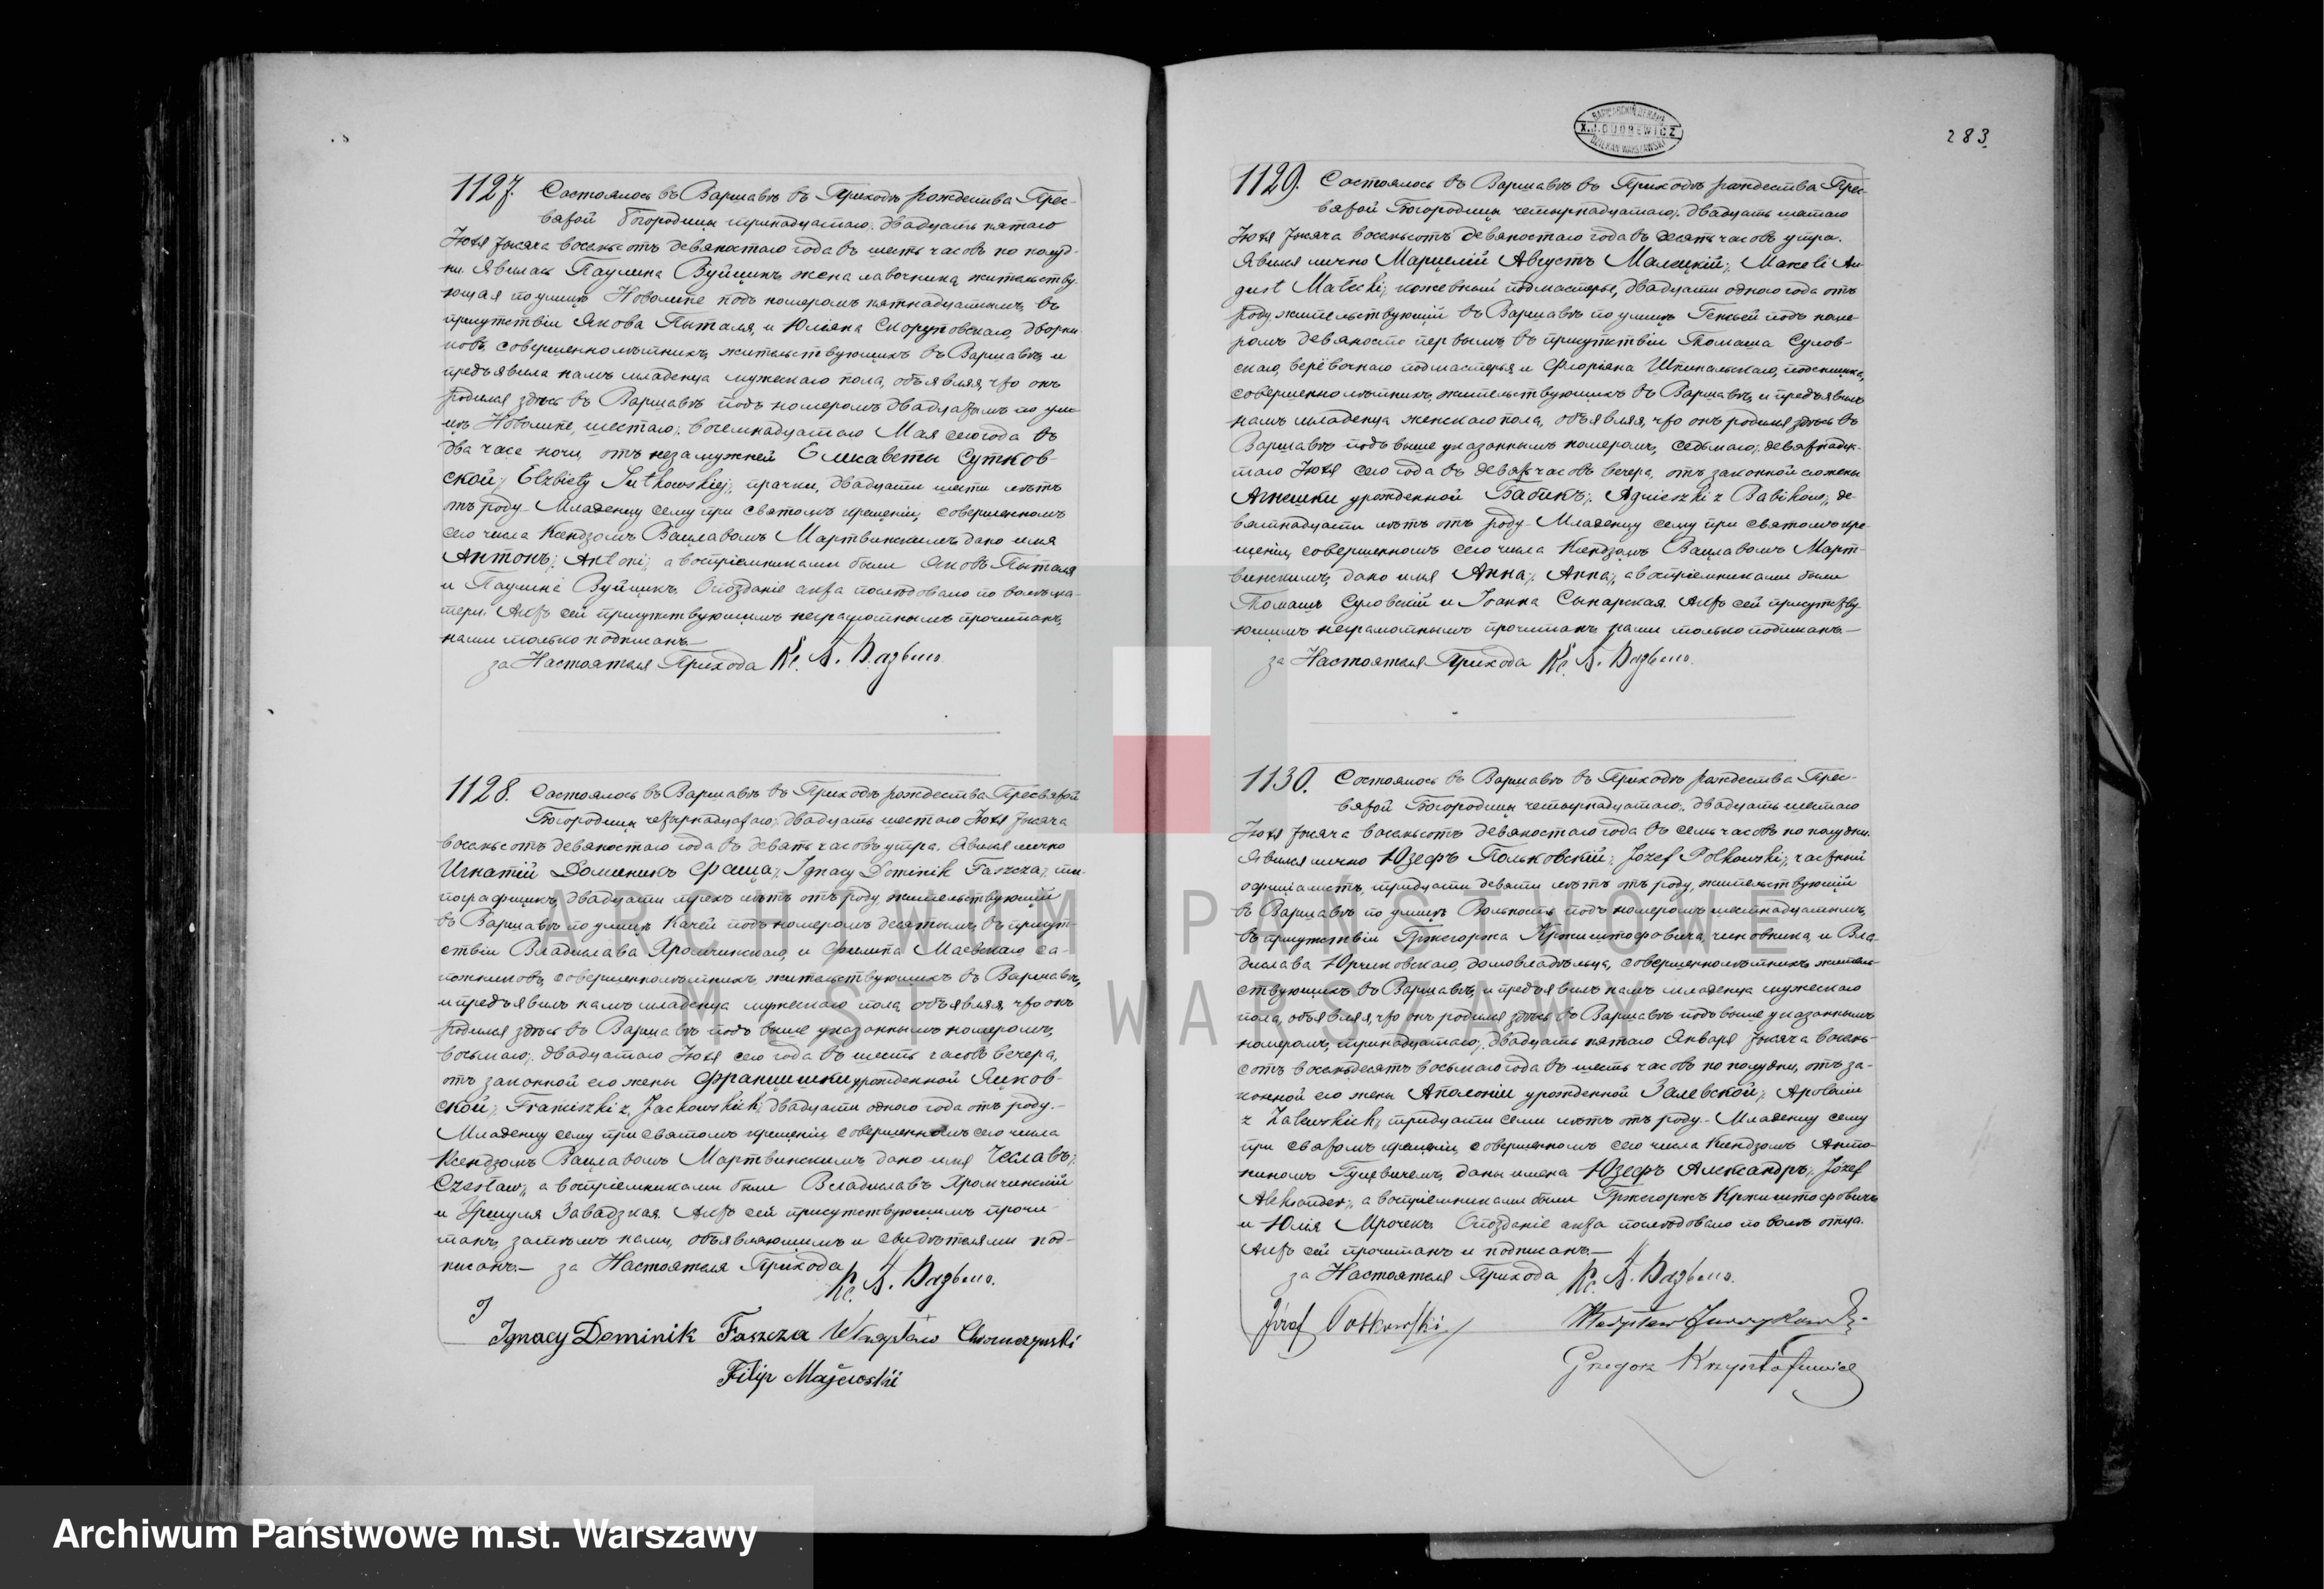 1127. Состоялось въ Варшавѣ въ Приходѣ рождества Прес-
вятой Богородицы тринадцатаго; двадцать пятаго
Іюля тысяча восемьсотъ девяностаго года въ шесть часовъ по полуд-
ни. Явилась Паулина Вуйцикъ жена лавочника, жительству-
ющая по улицѣ Новолипе подъ номеромъ пятнадцатымъ, въ
присутствіи Якова Пыталя, и Юліяна дворни-
ковъ, совершеннолѣтнихъ, жительствующихъ въ Варшавѣ, и
предъявила намъ младенца мужескаго пола, объявляя, что онъ
родился здѣсь въ Варшавѣ подъ номеромъ двадцатымъ по ули-
цѣ Новолипе, шестаго; восемнадцатаго Мая сего года въ
два часа ночи, отъ незамужней Елисаветы Сутков-
ской; Elżbiety Sutkowskiej; прачки, двадцати шести лѣтъ
отъ роду. Младенцу сему при святомъ крещеніи, совершенномъ
сего числа Ксендзомъ Вацлавомъ Мартвинскимъ, дано имя
Антонъ; Antoni; а воспріемниками были Яковъ Пыталя
и Паулина Вуйцикъ. Опозданіе акта послѣдовало по волѣ ма-
тери. Актъ сей присутствующимъ неграмотнымъ прочитанъ,
нами только подписанъ.—
за Настоятеля Прихода Кс. А.
1128. Состоялось въ Варшавѣ въ Приходѣ рождества Пресвятой
Богородицы четырнадцатаго; двадцать шестаго Іюля тысяча
восемьсотъ девяностаго года въ девять часовъ утра. Явился лично
Игнатій Доминикъ Фаща; Ignacy Dominik Faszcza; ти-
пографщикъ, двадцати трехъ лѣтъ отъ роду, жительствующій
въ Варшавѣ по улицѣ Качей подъ номеромъ десятымъ, въ присут-
ствіи Владислава Хромчинскаго, и Филипа Маевскаго са-
пожниковъ, совершеннолѣтнихъ, жительствующихъ въ Варшавѣ,
и предъявилъ намъ младенца мужескаго пола, объявляя, что онъ
родился здѣсь въ Варшавѣ подъ выше указаннымъ номеромъ,
восьмаго; двадцатаго Іюля сего года въ шесть часовъ вечера,
отъ законной его жены Францишки урожденной Яцков-
ской; Franciszki z Jackowskich; двадцати одного года отъ роду.—
Младенцу сему при святомъ крещеніи, совершенномъ сего числа
Ксендзомъ Вацлавомъ Мартвинскимъ, дано имя Чеславъ;
Czesław; а воспріемниками были Владиславъ Хромчинскій
и Уршуля Завадзкая. Актъ сей присутствующимъ прочи-
танъ, затѣмъ нами, объявляющимъ и свидѣтелями под-
писанъ.— за Настоятеля Прихода
Кс. А.
Ignacy Dominik Faszcza Władysław Chromczyński
Filip Majewski
283
X.J. DUDREWICZ
DZIEKAN WARSZAWSKI
1129. Состоялось въ Варшавѣ въ Приходѣ рождества Прес-
вятой Богородицы четырнадцатаго; двадцать шестаго
Іюля тысяча восемьсотъ девяностаго года въ десять часовъ утра.
Явился лично Марцелій Августъ Малецкій; Marceli Au-
gust Małecki; кожевный подмастерье, двадцати одного года отъ
роду, жительствующій въ Варшавѣ по улицѣ Генсьей подъ номе-
ромъ девяносто первымъ, въ присутствіи Томаша Сулов-
скаго, верёвочнаго подмастерья и Флоріяна
совершеннолѣтнихъ, жительствующихъ въ Варшавѣ, и предъявилъ
намъ младенца женскаго пола, объявляя, что онъ родился здѣсь въ
Варшавѣ подъ выше указаннымъ номеромъ, седьмаго; девятнадца-
таго Іюля сего года въ девять часовъ вечера, отъ законной его жены
Агнешки урожденной Бабикъ; Agnieszki z Babików; де-
вятнадцати лѣтъ отъ роду. Младенцу сему при святомъ кре-
щеніи, совершенномъ сего числа Ксендзомъ Вацлавомъ Март-
винскимъ, дано имя Анна; Anna; а воспріемниками были
Томашъ Суловскій и Іоанна Актъ сей присутству-
ющимъ неграмотнымъ прочитанъ, нами только подписанъ.—
за Настоятеля Прихода Кс. А.
1130. Состоялось въ Варшавѣ въ Приходѣ рождества Прес-
вятой Богородицы четырнадцатаго; двадцать шестаго
Іюля тысяча восемьсотъ девяностаго года въ семь часовъ по полудни.
Явился лично Юзефъ Польковскій; Józef Polkowski; частный
оффиціалистъ, тридцати девяти лѣтъ отъ роду, жительствующій
въ Варшавѣ по улицѣ Вольность подъ номеромъ шестнадцатымъ,
въ присутствіи Гржегоржа Кржиштофовича, чиновника, и Вла-
дислава домовладѣльца, совершеннолѣтнихъ, житель-
ствующихъ въ Варшавѣ, и предъявилъ намъ младенца мужескаго
пола, объявляя, что онъ родился здѣсь въ Варшавѣ подъ выше указаннымъ
номеромъ, тринадцатаго; двадцать пятаго Января тысяча восемь-
сотъ восемьдесятъ восьмаго года въ шесть часовъ по полудни, отъ за-
конной его жены Аполоніи урожденной Залевской; Apolonii
z Zalewskich; тридцати семи лѣтъ отъ роду. Младенцу сему
при святомъ крещеніи, совершенномъ сего числа Ксендзомъ Анто-
ниномъ даны имена Юзефъ Александръ; Józef
Aleksander; а воспріемниками были Гржегоржъ Кржиштофовичъ
и Юлія Мрочекъ. Опозданіе акта послѣдовало по волѣ отца.
Актъ сей прочитанъ и подписанъ.—
за Настоятеля Прихода Кс. А.
Józef Polkowski
Władysław
Grzegorz Krzysztofowicz
ARCHIWUM PAŃSTWOWE
M.ST. WARSZAWY
Archiwum Państwowe m.st. Warszawy